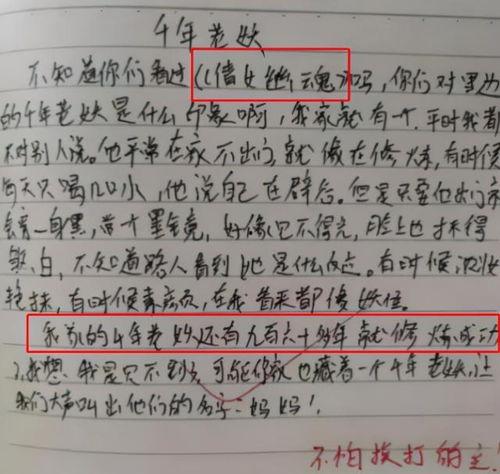 千年老妖
不知道你们看过《倩女幽魂》吗，你们对里边
的千年老妖是什么印象啊，我家就有一个，平时我都
不对别人说。她平常在家不出门，就像在修炼，有时候
每天只喝几口水，他说自己在辟谷。但是只要他出门
一身黑，带个墨镜，好像见不得光，脸上也抹得
白，不知道路人看到她是什么反应。有时候浓妆
艳抹，有时候素颜，在我看来都像妖怪。
我家的千年老妖还有九百六十多年就修炼成功
了，我想，我是见不到了，可能你家也藏着一个千年老妖，让
我们大声叫出他们的名字－妈妈！
不怕挨打的主！